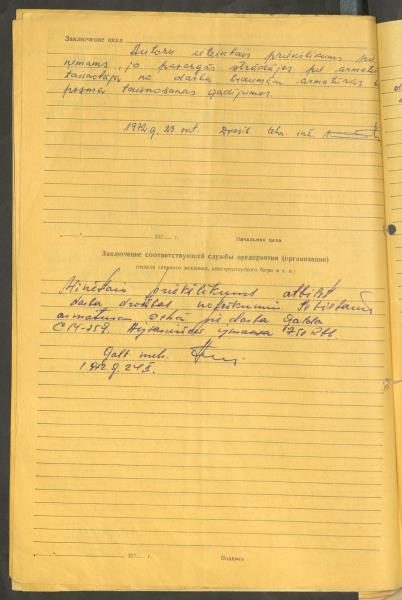 Заключение цеха
Autoru ieteiktais priekšlikums pie-
ņemams, jo pasargās strādājos pie armat.
taisnotājos no darba traumām armatūras
taisnošanas gadījumos.
1972.g. 23. Drošīb. tehn. inž.
197 г. Начальник цеха
Заключение соответствующей службы предприятия (организации)
(отдела главного механика, конструкторского бюро и т. п.)
Minētais priekšlikums atbilst
darba drošības noteikumiem
armatūras cehā pie darba galda
СМ-759.
Galv. meh.
1972.g. 24.
197 г. Подпись